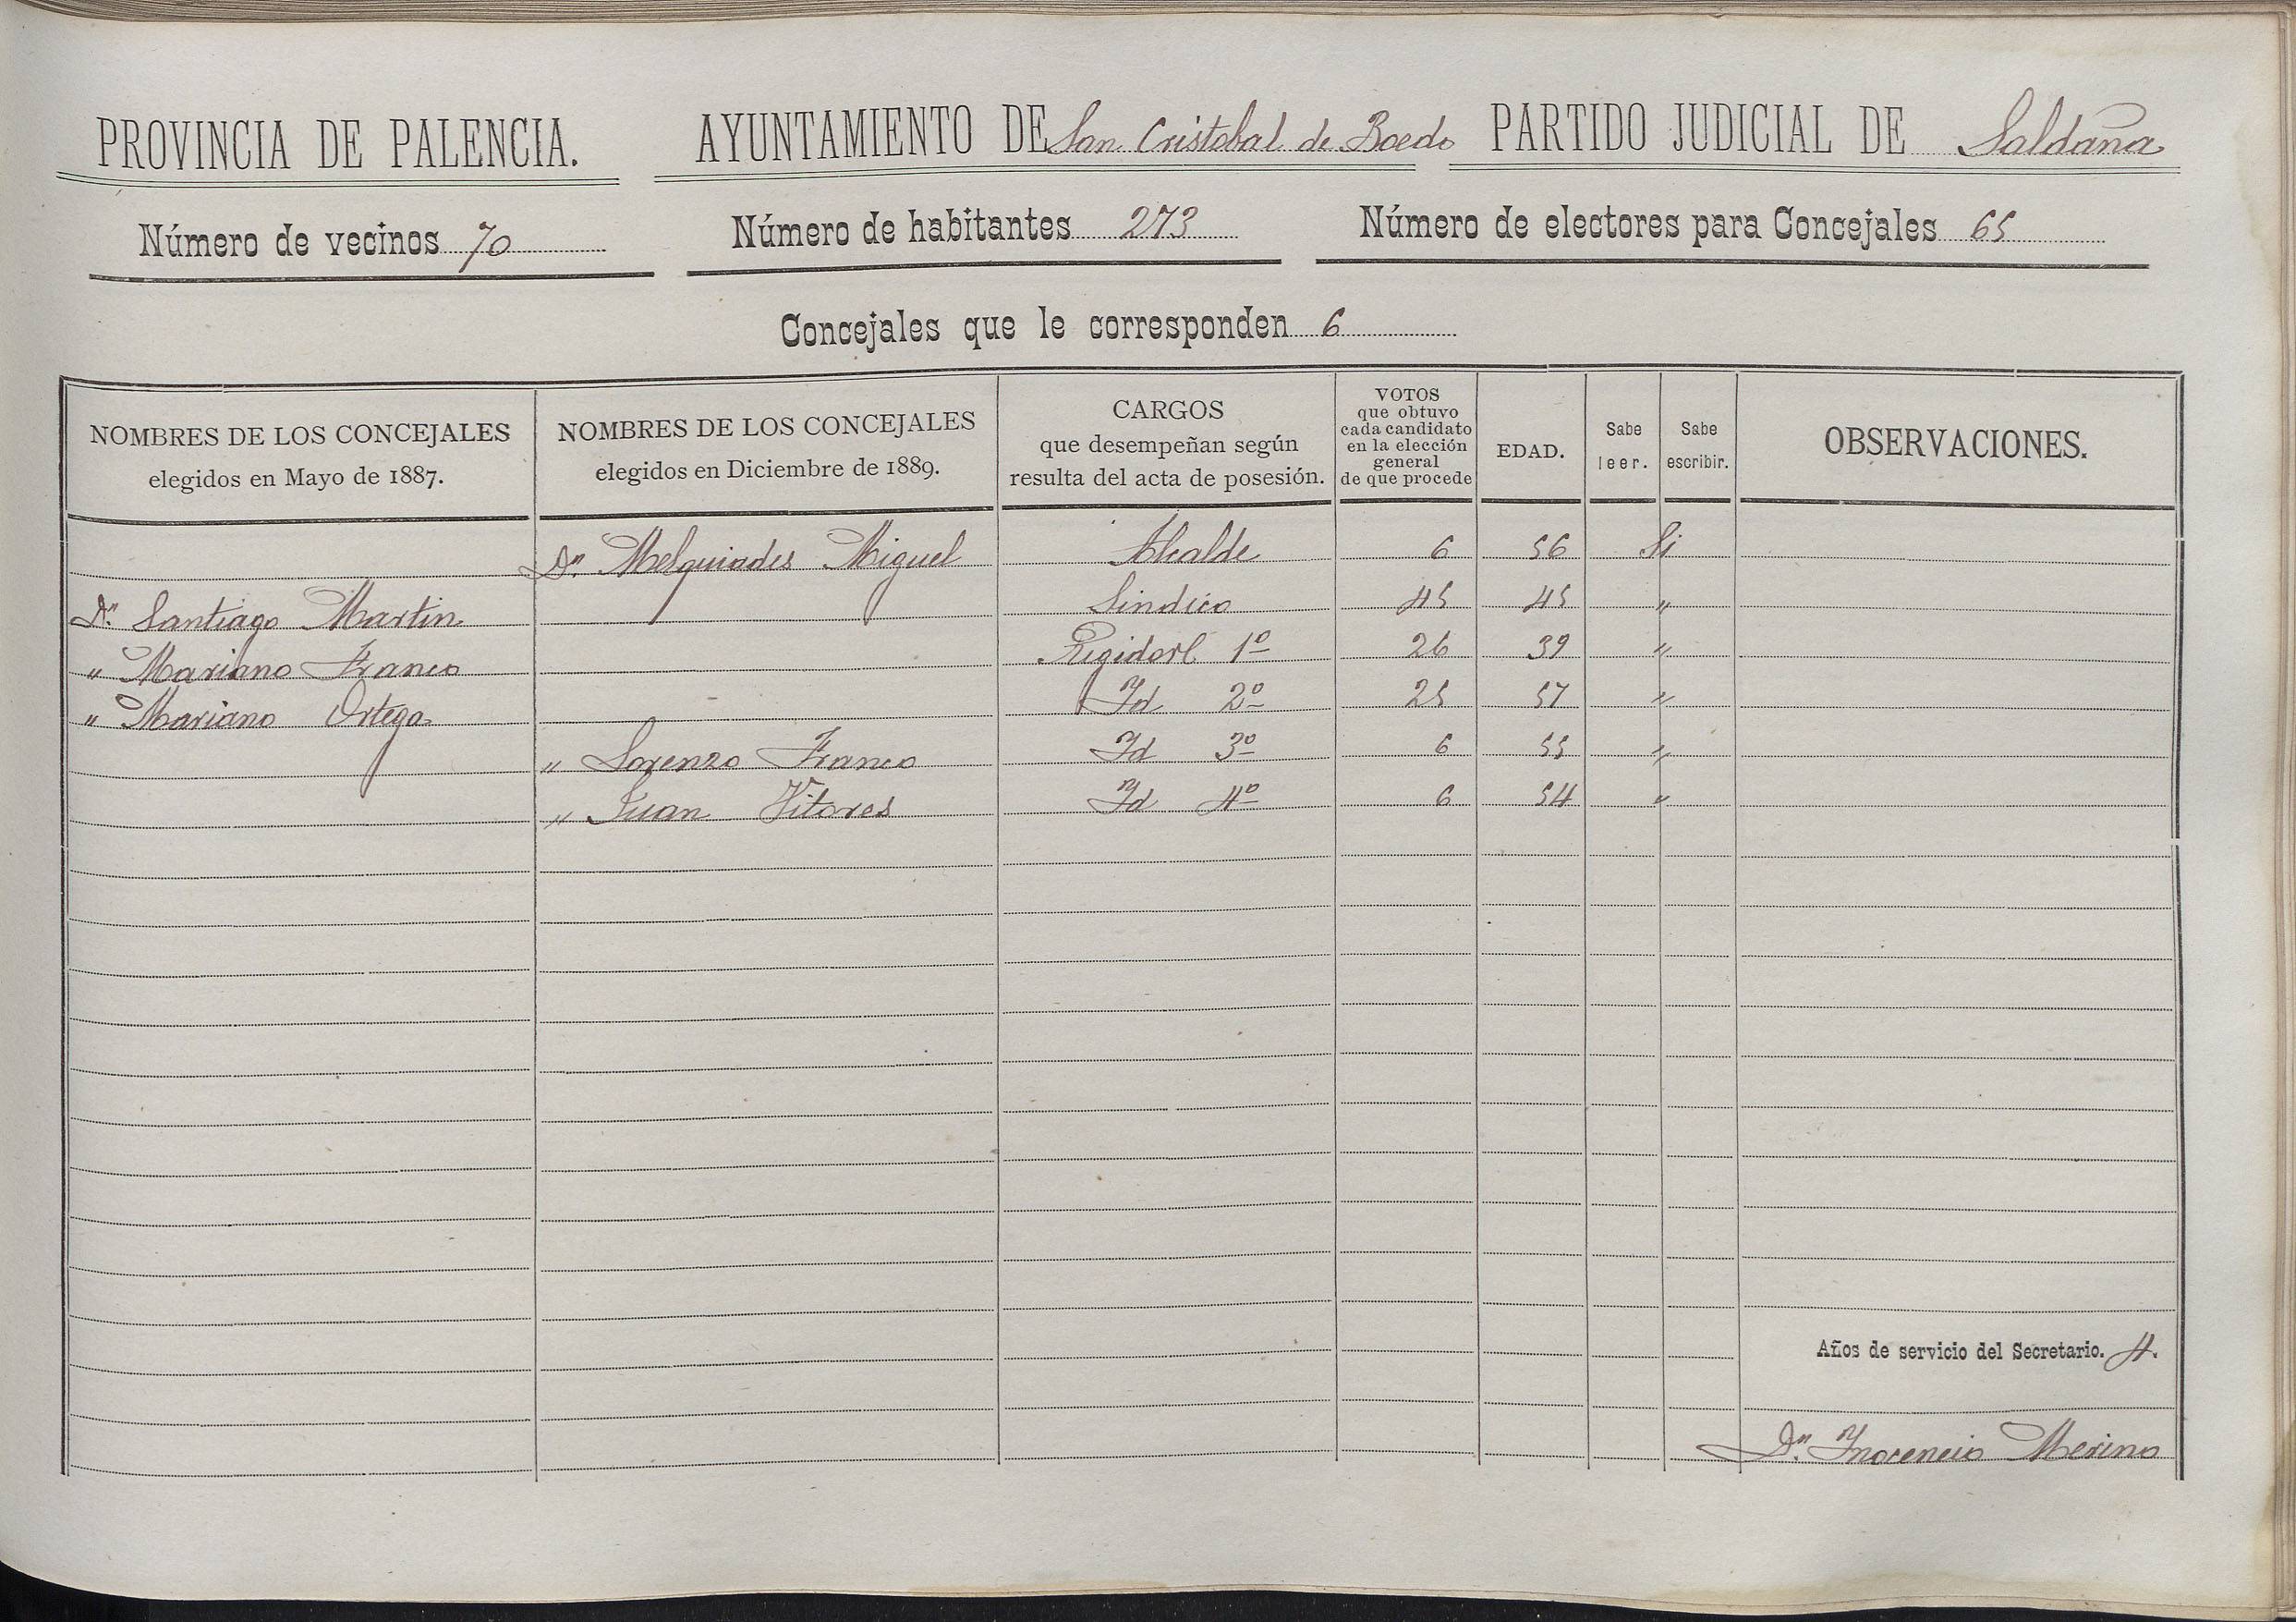 PROVINCIA DE PALENCIA. AYUNTAMIENTO DE San Cristobal de Boedo PARTIDO JUDICIAL DE Saldaña
Número de vecinos 70 Número de habitantes 273 Número de electores para Concejales 65
Concejales que le corresponden 6
NOMBRES DE LOS CONCEJALES
elegidos en Mayo de 1887.
NOMBRES DE LOS CONCEJALES
elegidos en Diciembre de 1889.
CARGOS
que desempeñan según
resulta del acta de posesión.
VOTOS
que obtuvo
cada candidato
en la elección
general
de que procede
EDAD.
Sabe
leer.
Sabe
escribir.
OBSERVACIONES.
Dn. Melquiades Miguel Alcalde 6 56 Si
Dn. Santiago Martin Sindico 45 45 "
" Mariano Franco Regidor 1º 26 39 "
" Mariano Ortega Id 2º 25 57 "
" Lorenzo Franco Id 3º 6 55 "
" Juan Vitores Id 4º 6 54 "
Años de servicio del Secretario. 4.
Dn. Inocencio Merino